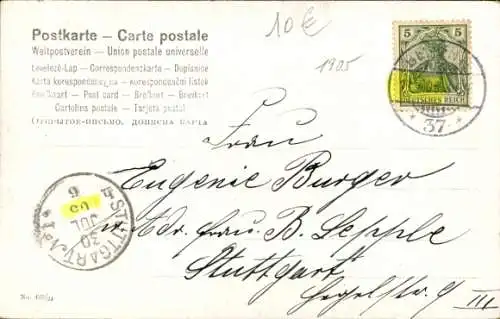 10€
Postkarte – Carte postale
Weltpostverein – Union postale universelle
Levelező-Lap – Correspondenzkarte – Dopisnice
Karta korespondencyjna – korespondenční lístek
Brefkaart – Post card – Brefkort – Brevkort
Cartolina postale – Tarjeta postal
Открытое письмо. Дописна карта
1905
5 5
DEUTSCHES REICH
37.
Frau
Eugenie Burger
Adr. Frau B. Lepple
Stuttgart
Hegelstr. 9 III
STUTTGART No. 1
30
JUL
05
No.